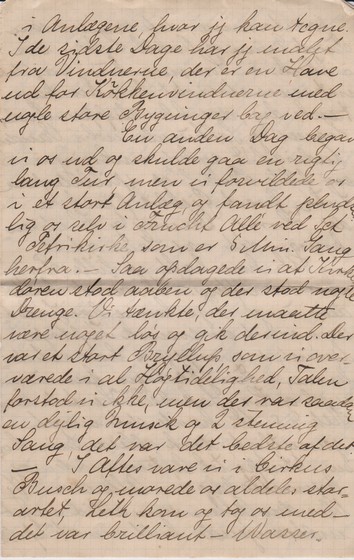 i Anlægene, hvor jeg kan tegne.
I de sidste Dage har jeg malet
fra Vinduerne, der er en Have
ud for Køkkenvinduerne med
nogle store Bygninger bag ved. —
En anden Dag begav
vi os ud og skulde gaa en rigtig
lang Tur, men vi forvildede os
i et stort Anlæg og fandt pluds-
lig os selv i Frucht Alle ved
Petrikirke, som er 5 Min. Gang
herfra. — Saa opdagede vi at Kirke
døren stod aaben og der stod nogle
Drenge. Vi tænkte, der maatte
være noget løs og gik derind. Der
var et stort Bryllup som vi over-
værede i al Højtidelighed, Talen
forstod vi ikke, men der var saadan
en dejlig Musik og 2 stemmig
Sang, det var det bedste af det.
— I Aftes vare vi i Cirkus
Busch og morede os aldeles stor-
artet, kom og tog os med —
det var brilliant —